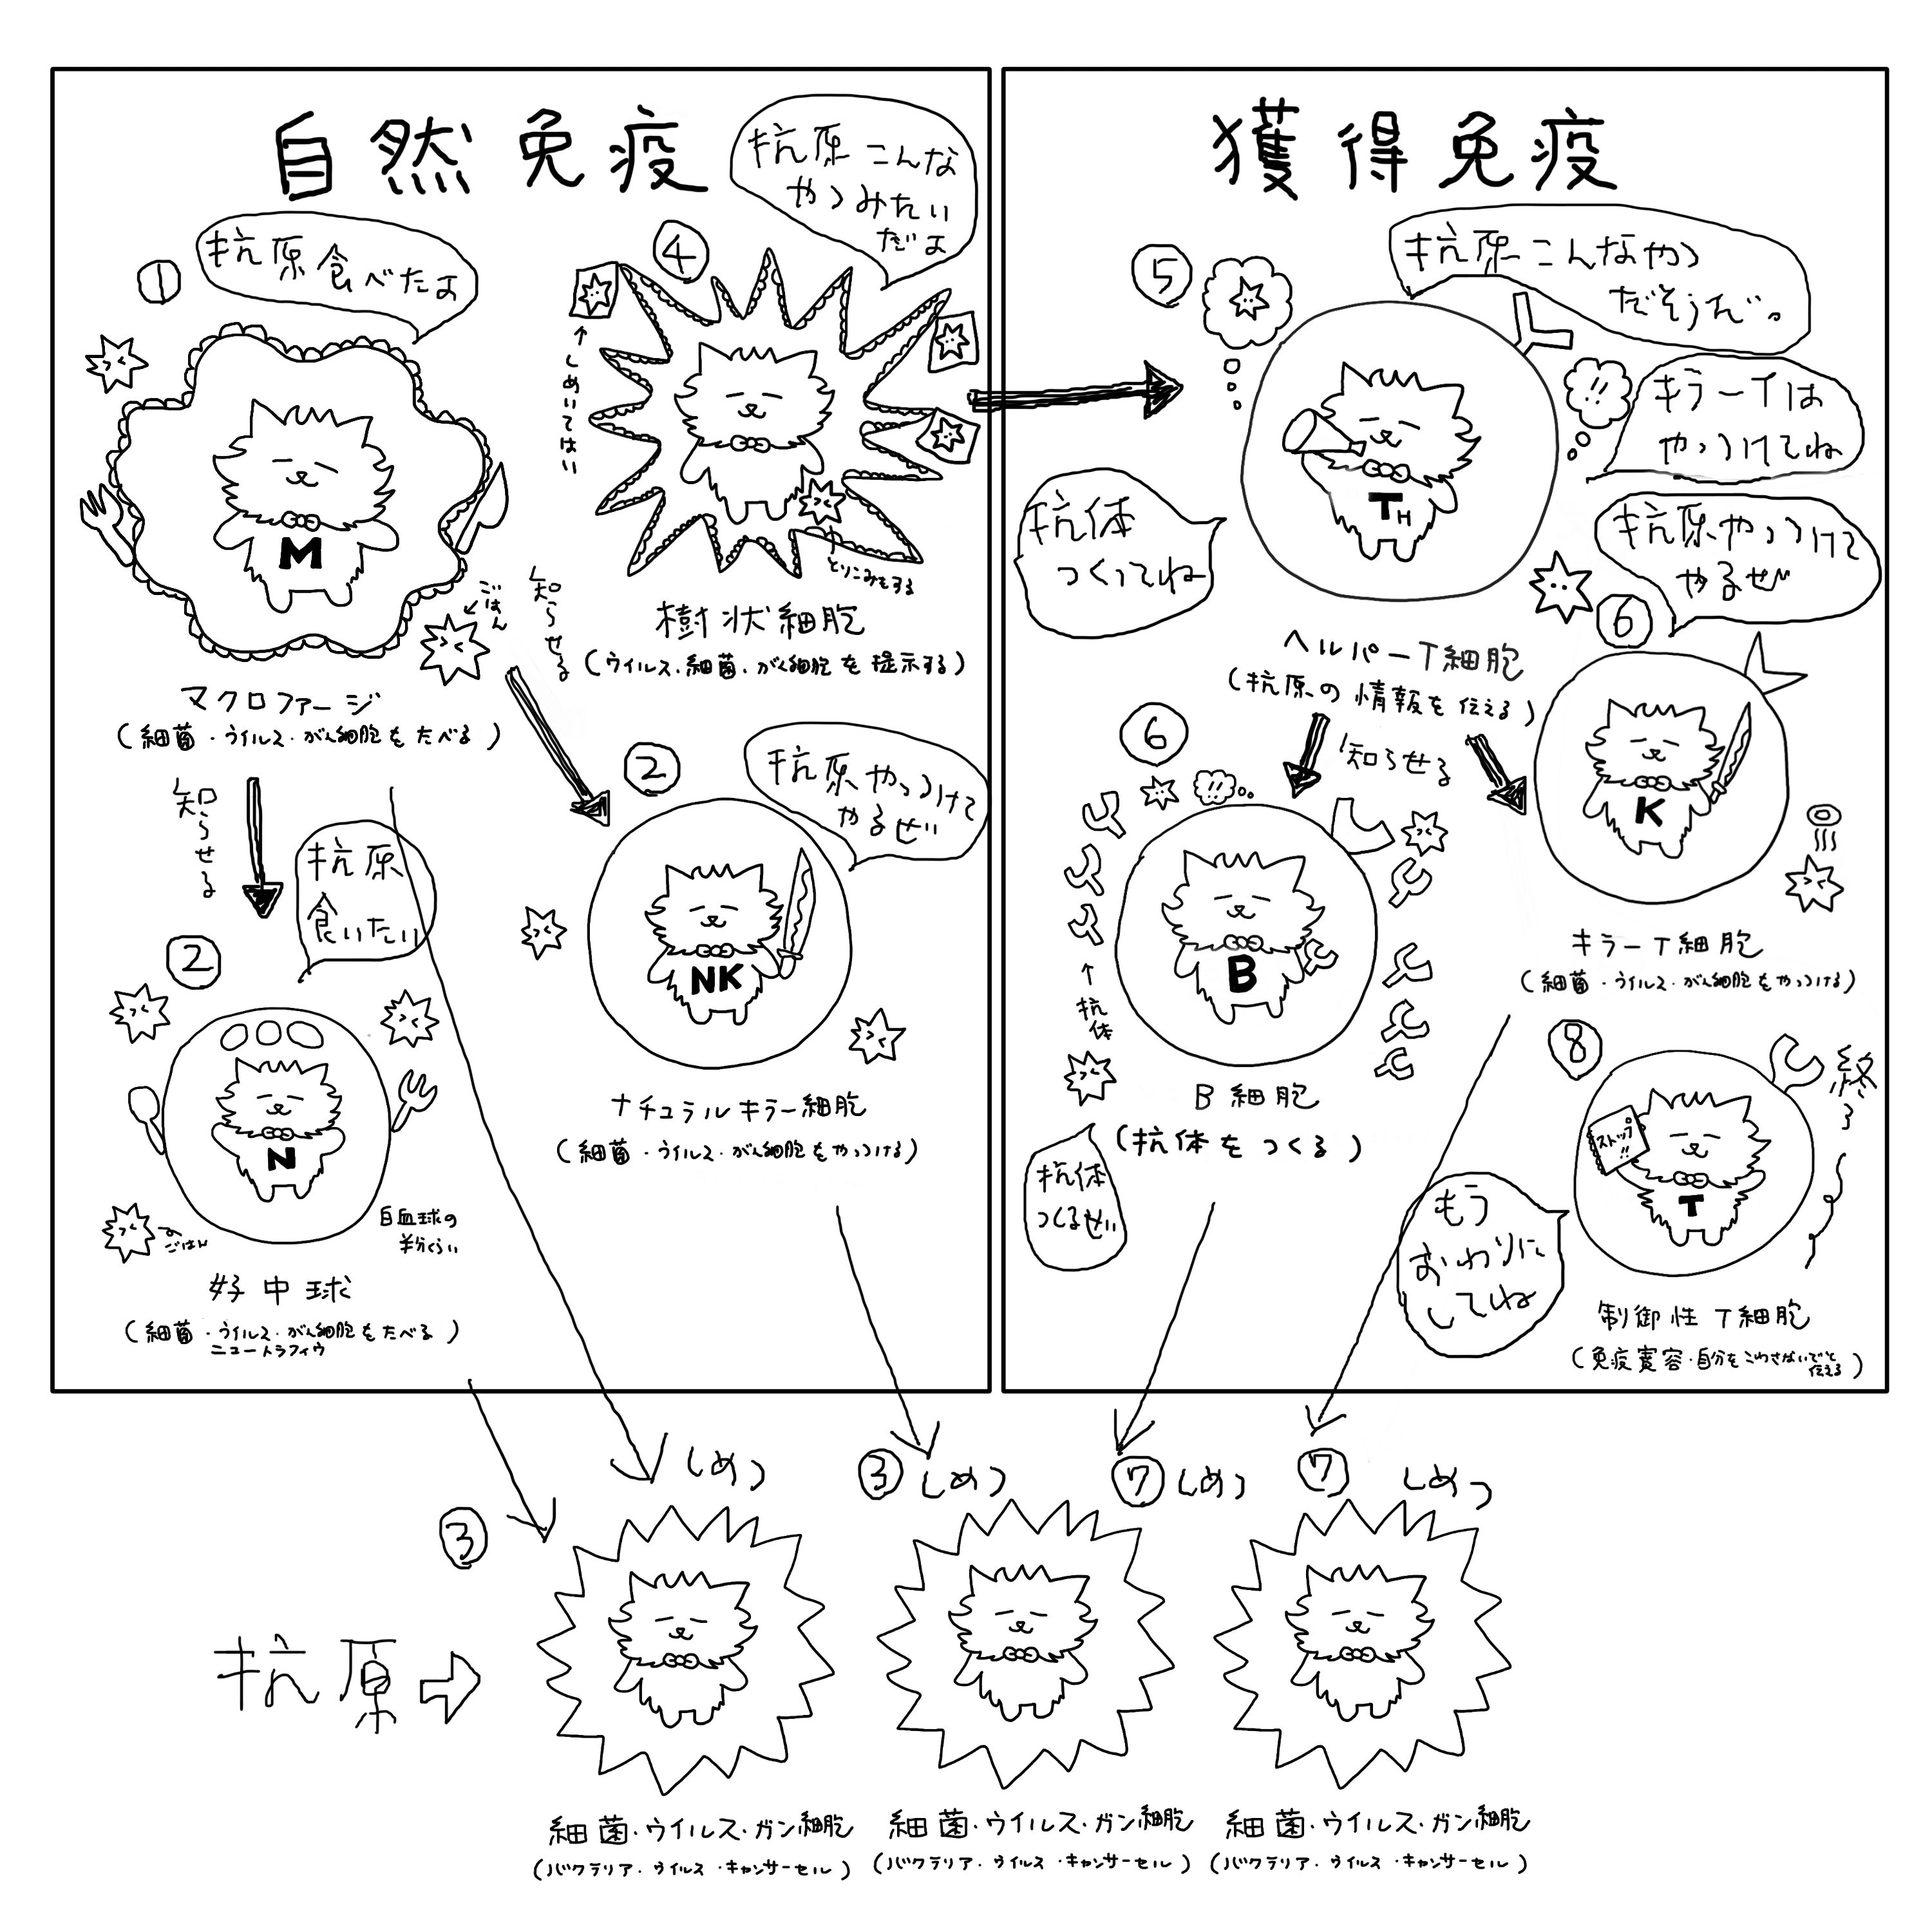 自然免疫
①
抗原食べたよ
M
ごはん
マクロファージ
(細菌・ウイルス・がん細胞をたべる)
知らせる
知らせる
④
抗原こんな
やつみたい
だよ
↑しめいてはい
とりこみもする
樹状細胞
(ウイルス・細菌・がん細胞を提示する)
②
抗原
食いたい
N
ごはん
白血球の
半分くらい
好中球
(細菌・ウイルス・がん細胞をたべる)
ニュートラフィウ
②
抗原やっつけて
やるぜい
NK
ナチュラルキラー細胞
(細菌・ウイルス・がん細胞をやっつける)
獲得免疫
⑤
抗原こんなやつ
だそうだ。
キラーTは
やっつけてね
抗体
つくってね
TH
ヘルパーT細胞
(抗原の情報を伝える)
知らせる
⑥
抗原やっつけて
やるぜい
K
キラーT細胞
(細菌・ウイルス・がん細胞をやっつける)
⑥
!!
B
↑抗体
B細胞
(抗体をつくる)
抗体
つくるぜい
⑧
終了
ストップ
!!
T
もう
おわりに
してね
制御性T細胞
(免疫寛容・自分をこわさないでと
伝える)
③
しめつ
③
しめつ
⑦
しめつ
⑦
しめつ
抗原⇨
細菌・ウイルス・ガン細胞
(バクテリア・ウイルス・キャンサーセル)
細菌・ウイルス・ガン細胞
(バクテリア・ウイルス・キャンサーセル)
細菌・ウイルス・ガン細胞
(バクテリア・ウイルス・キャンサーセル)